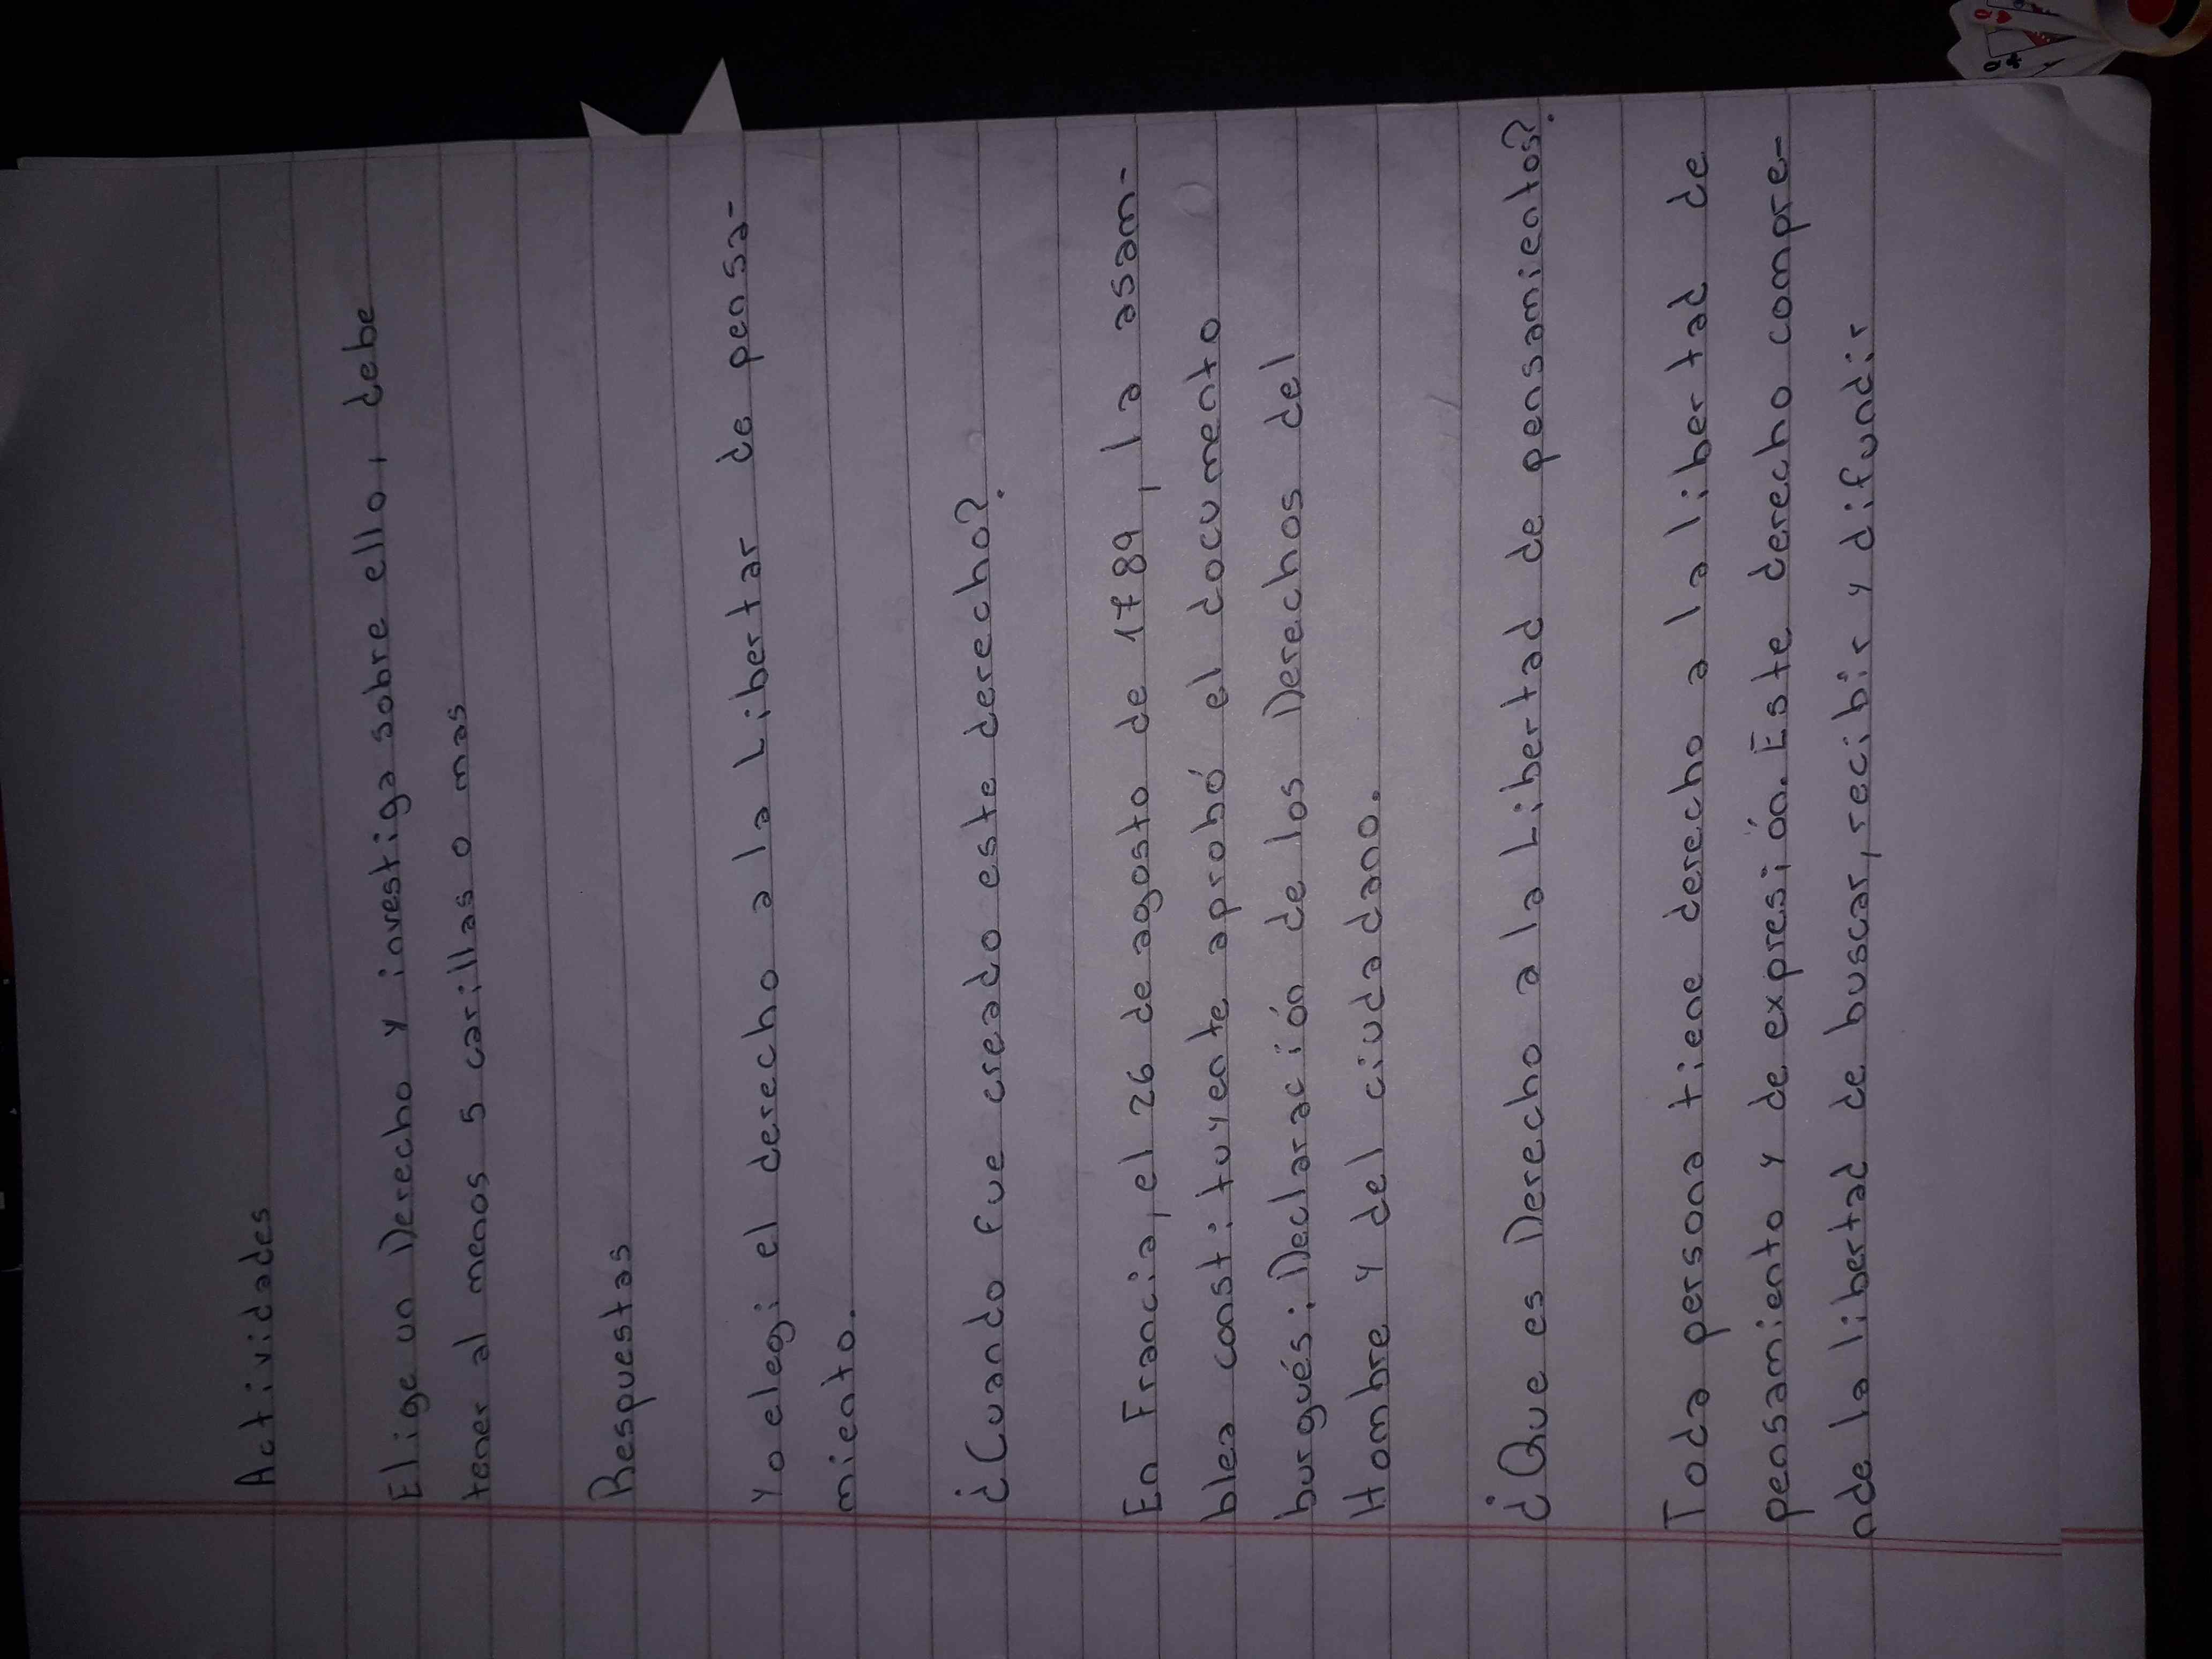 Actividades
Elige un Derecho y investiga sobre ello, debe
tener al menos 5 carillas o mas
Respuestas
Yo elegi el derecho a la Libertar de pensa-
miento.
¿Cuando fue creado este derecho?
En Francia, el 26 de agosto de 1789, la asam-
blea constituyente aprobó el documento
burgués: Declaración de los Derechos del
Hombre y del ciudadano.
¿Que es Derecho a la Libertad de pensamientos?
Toda persona tiene derecho a la libertad de
pensamiento y de expresión. Este derecho compre-
nde la libertad de buscar, recibir y difundir